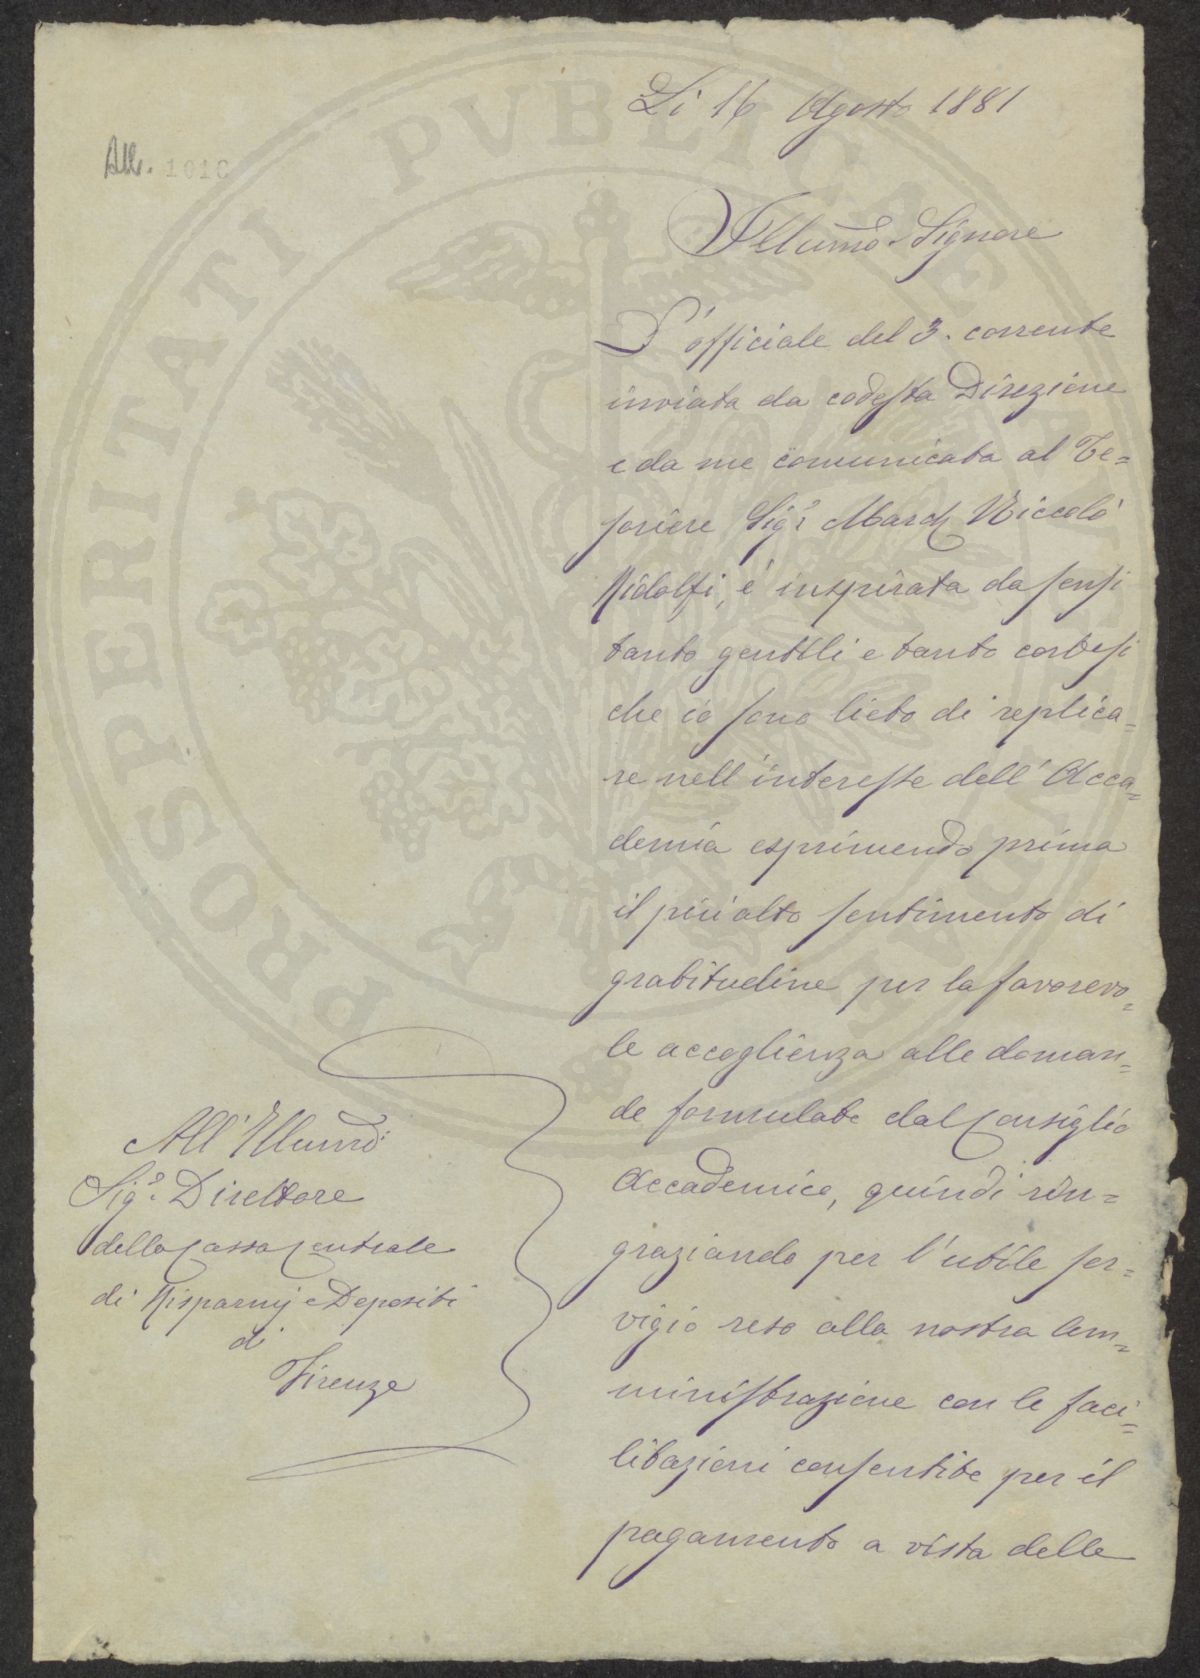 Li 16 Agosto 1881
All. 1010
Illumo. Signore
L'officiale del 3. corrente
inviata da codesta Direzione
e da me comunicata al Te=
soriere Sigr. March Niccolò
Ridolfi, è inspirata da sensi
tanto gentili e tanto cortesi
che io sono lieto di replica=
re nell'interesse dell'Acca=
demia esprimendo prima
il più alto sentimento di
gratitudine per la favorevo=
le accoglienza alle doman=
de formulate dal Consiglio
Accademico, quindi rin=
graziando per l'utile ser=
vigio reso alla nostra Am=
ministrazione con le faci=
litazioni consentite per il
pagamento a vista delle
All'Illumo.
Sigr. Direttore
della Cassa Centrale
di Risparmj e Depositi
di
Firenze
PROSPERITATI PVBLICAE